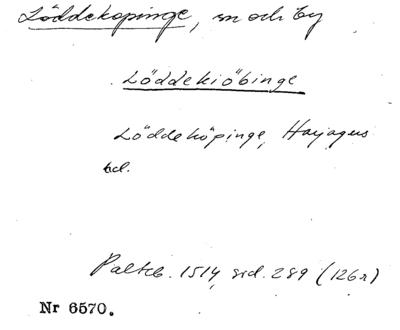 Löddeköpinge, sn och by
Löddekiöbinge
Löddeköpinge, Harjagers
hd.
Palteb. 1514, sid. 289 (126r)
Nr 6570.